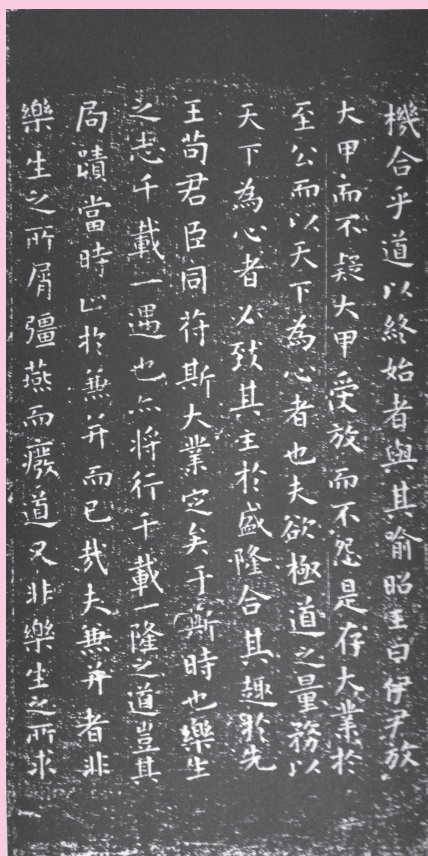 機合乎道以終始者與其喻昭王曰伊尹放
大甲而不疑大甲受放而不怨是存大業於
至公而以天下為心者也夫欲極道之量務以
天下為心者必致其主於盛隆合其趣於先
王苟君臣同苻斯大業定矣于斯時也樂生
之志千載一遇也亦將行千載一隆之道豈其
局蹟當時止於兼并而已哉夫兼并者非
樂生之所屑彊燕而廢道又非樂生之所求